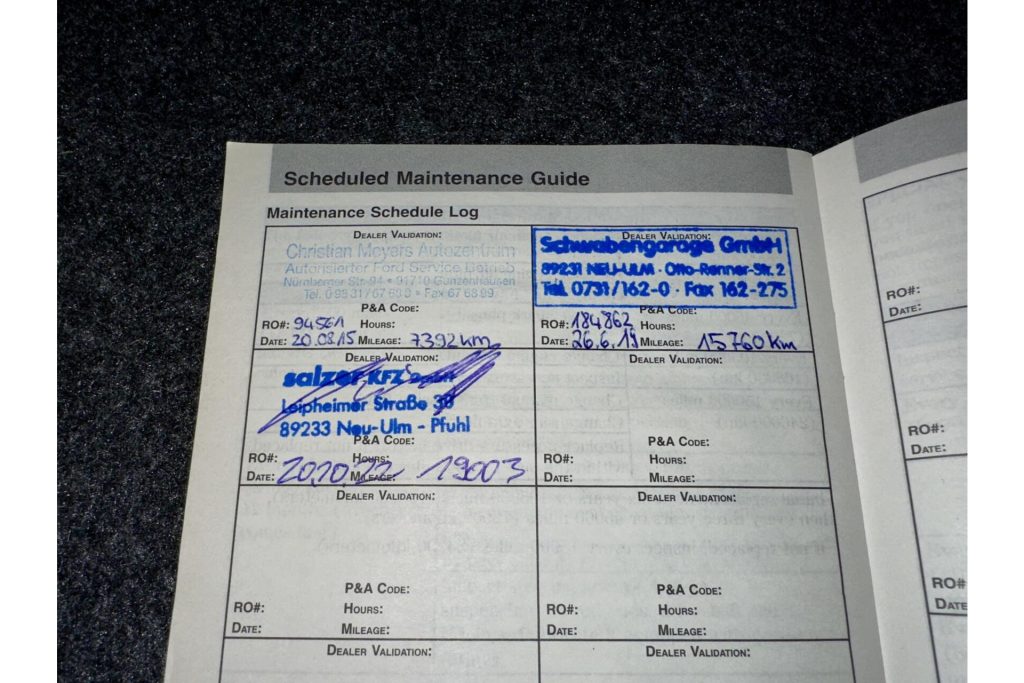 Scheduled Maintenance Guide
Maintenance Schedule Log
DEALER VALIDATION:
Christian Meyers Autozentrum
Autorisierter Ford Service Betrieb
Nürnberger Str. 94 • 91710 Gunzenhausen
Tel. 0 98 31/67 69 • Fax 67 68 99
P&A CODE:
RO#: 94561 HOURS:
DATE: 20.08.15 MILEAGE: 7392 km
DEALER VALIDATION:
Schwabengarage GmbH
89231 NEU-ULM · Otto-Renner-Str. 2
Tel. 0731/162-0 · Fax 162-275
P&A CODE:
RO#: 184862 HOURS:
DATE: 26.6.19 MILEAGE: 15760 km
DEALER VALIDATION:
salzer KFZ GmbH
Leipheimer Straße 30
89233 Neu-Ulm - Pfuhl
P&A CODE:
RO#: HOURS:
DATE: 20.10.22 MILEAGE: 19003
DEALER VALIDATION:
P&A CODE:
RO#: HOURS:
DATE: MILEAGE:
DEALER VALIDATION:
P&A CODE:
RO#: HOURS:
DATE: MILEAGE:
DEALER VALIDATION:
P&A CODE:
RO#: HOURS:
DATE: MILEAGE:
DEALER VALIDATION:
DEALER VALIDATION:
RO#:
DATE:
RO#:
DATE:
RO#
DATE